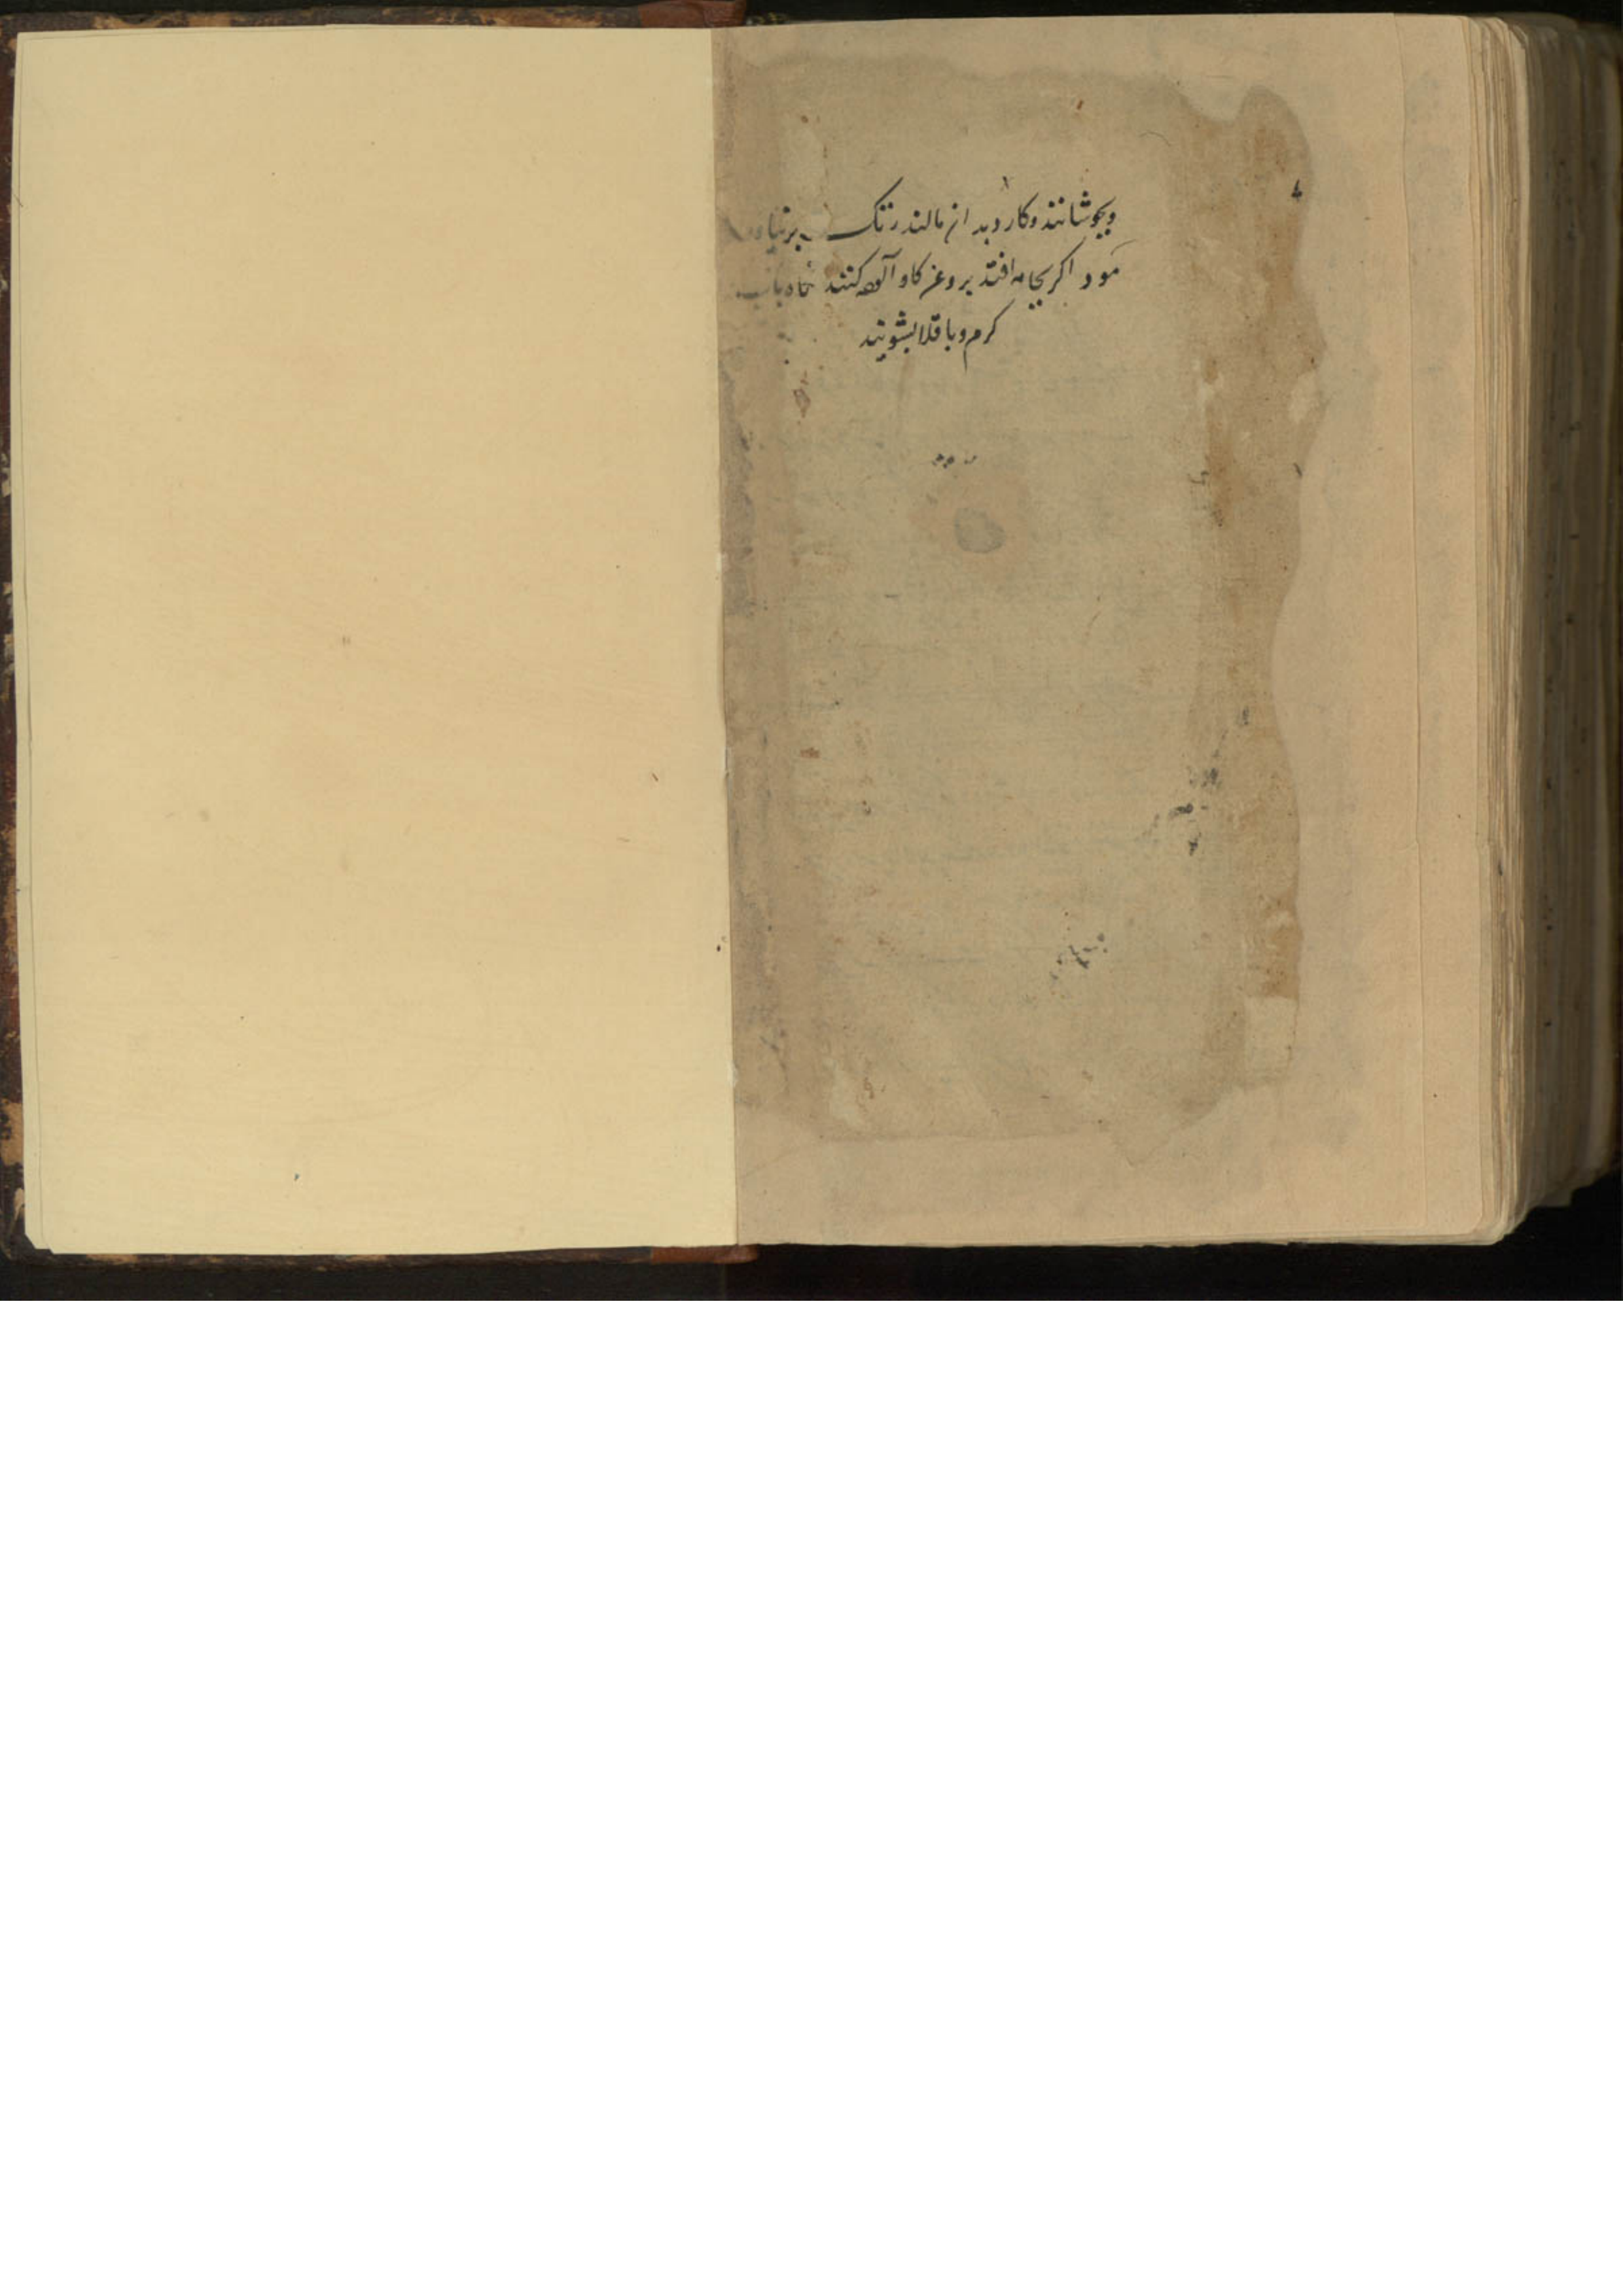 وبجوشانند وکارد بدان مالند زنک برنیاورد
مود اکر بجامه افتد بروغن کاو آلوده کنند بآب
کرم وباقلا بشویند